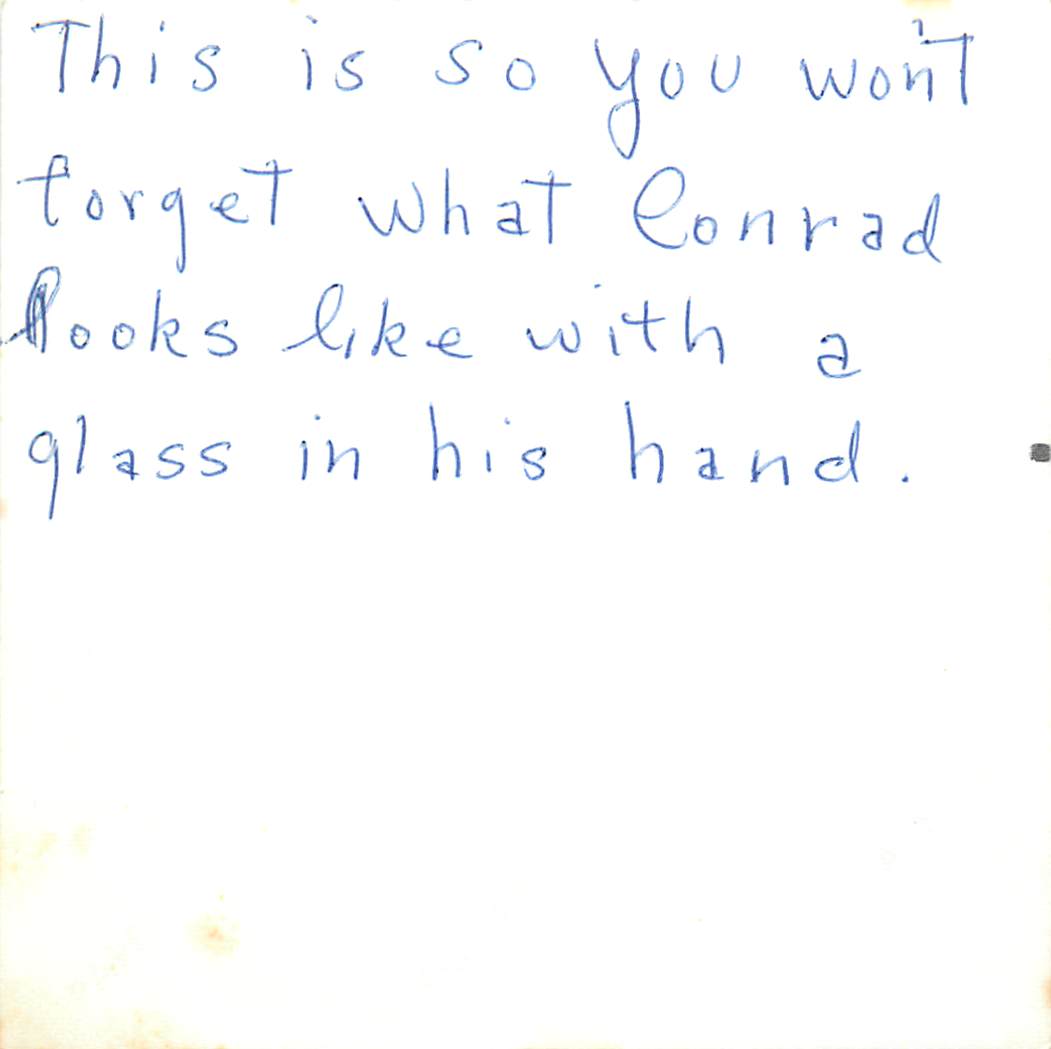 This is so you won't
forget what Conrad
looks like with a
glass in his hand.